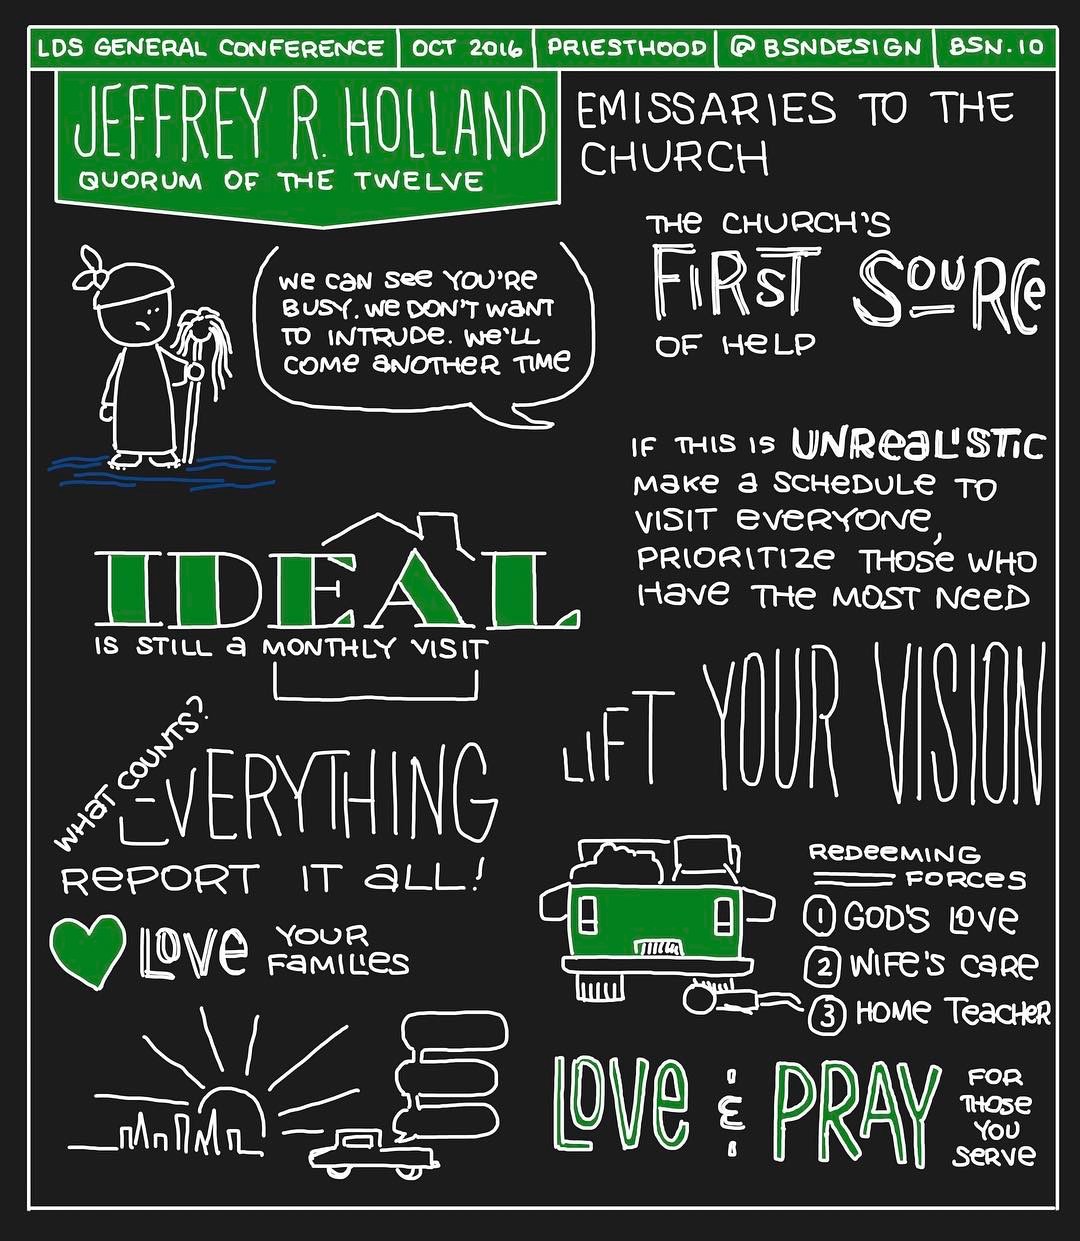 LDS GENERAL CONFERENCE | OCT 2016 | PRIESTHOOD | @BSNDESIGN | BSN.IO
JEFFREY R. HOLLAND
QUORUM OF THE TWELVE
EMISSARIES TO THE
CHURCH
WE CAN SEE YOU'RE
BUSY. WE DON'T WANT
TO INTRUDE. WE'LL
COME ANOTHER TIME
THE CHURCH'S
FIRST SOURCE
OF HELP
IF THIS IS UNREALISTIC
MAKE A SCHEDULE TO
VISIT EVERYONE,
PRIORITIZE THOSE WHO
HAVE THE MOST NEED
IDEAL
IS STILL A MONTHLY VISIT
LIFT YOUR VISION
WHAT COUNTS?
EVERYTHING
REPORT IT ALL!
LOVE YOUR
FAMILIES
REDEEMING
FORCES
1 GOD'S LOVE
2 WIFE'S CARE
3 HOME TEACHER
LOVE & PRAY
FOR
THOSE
YOU
SERVE